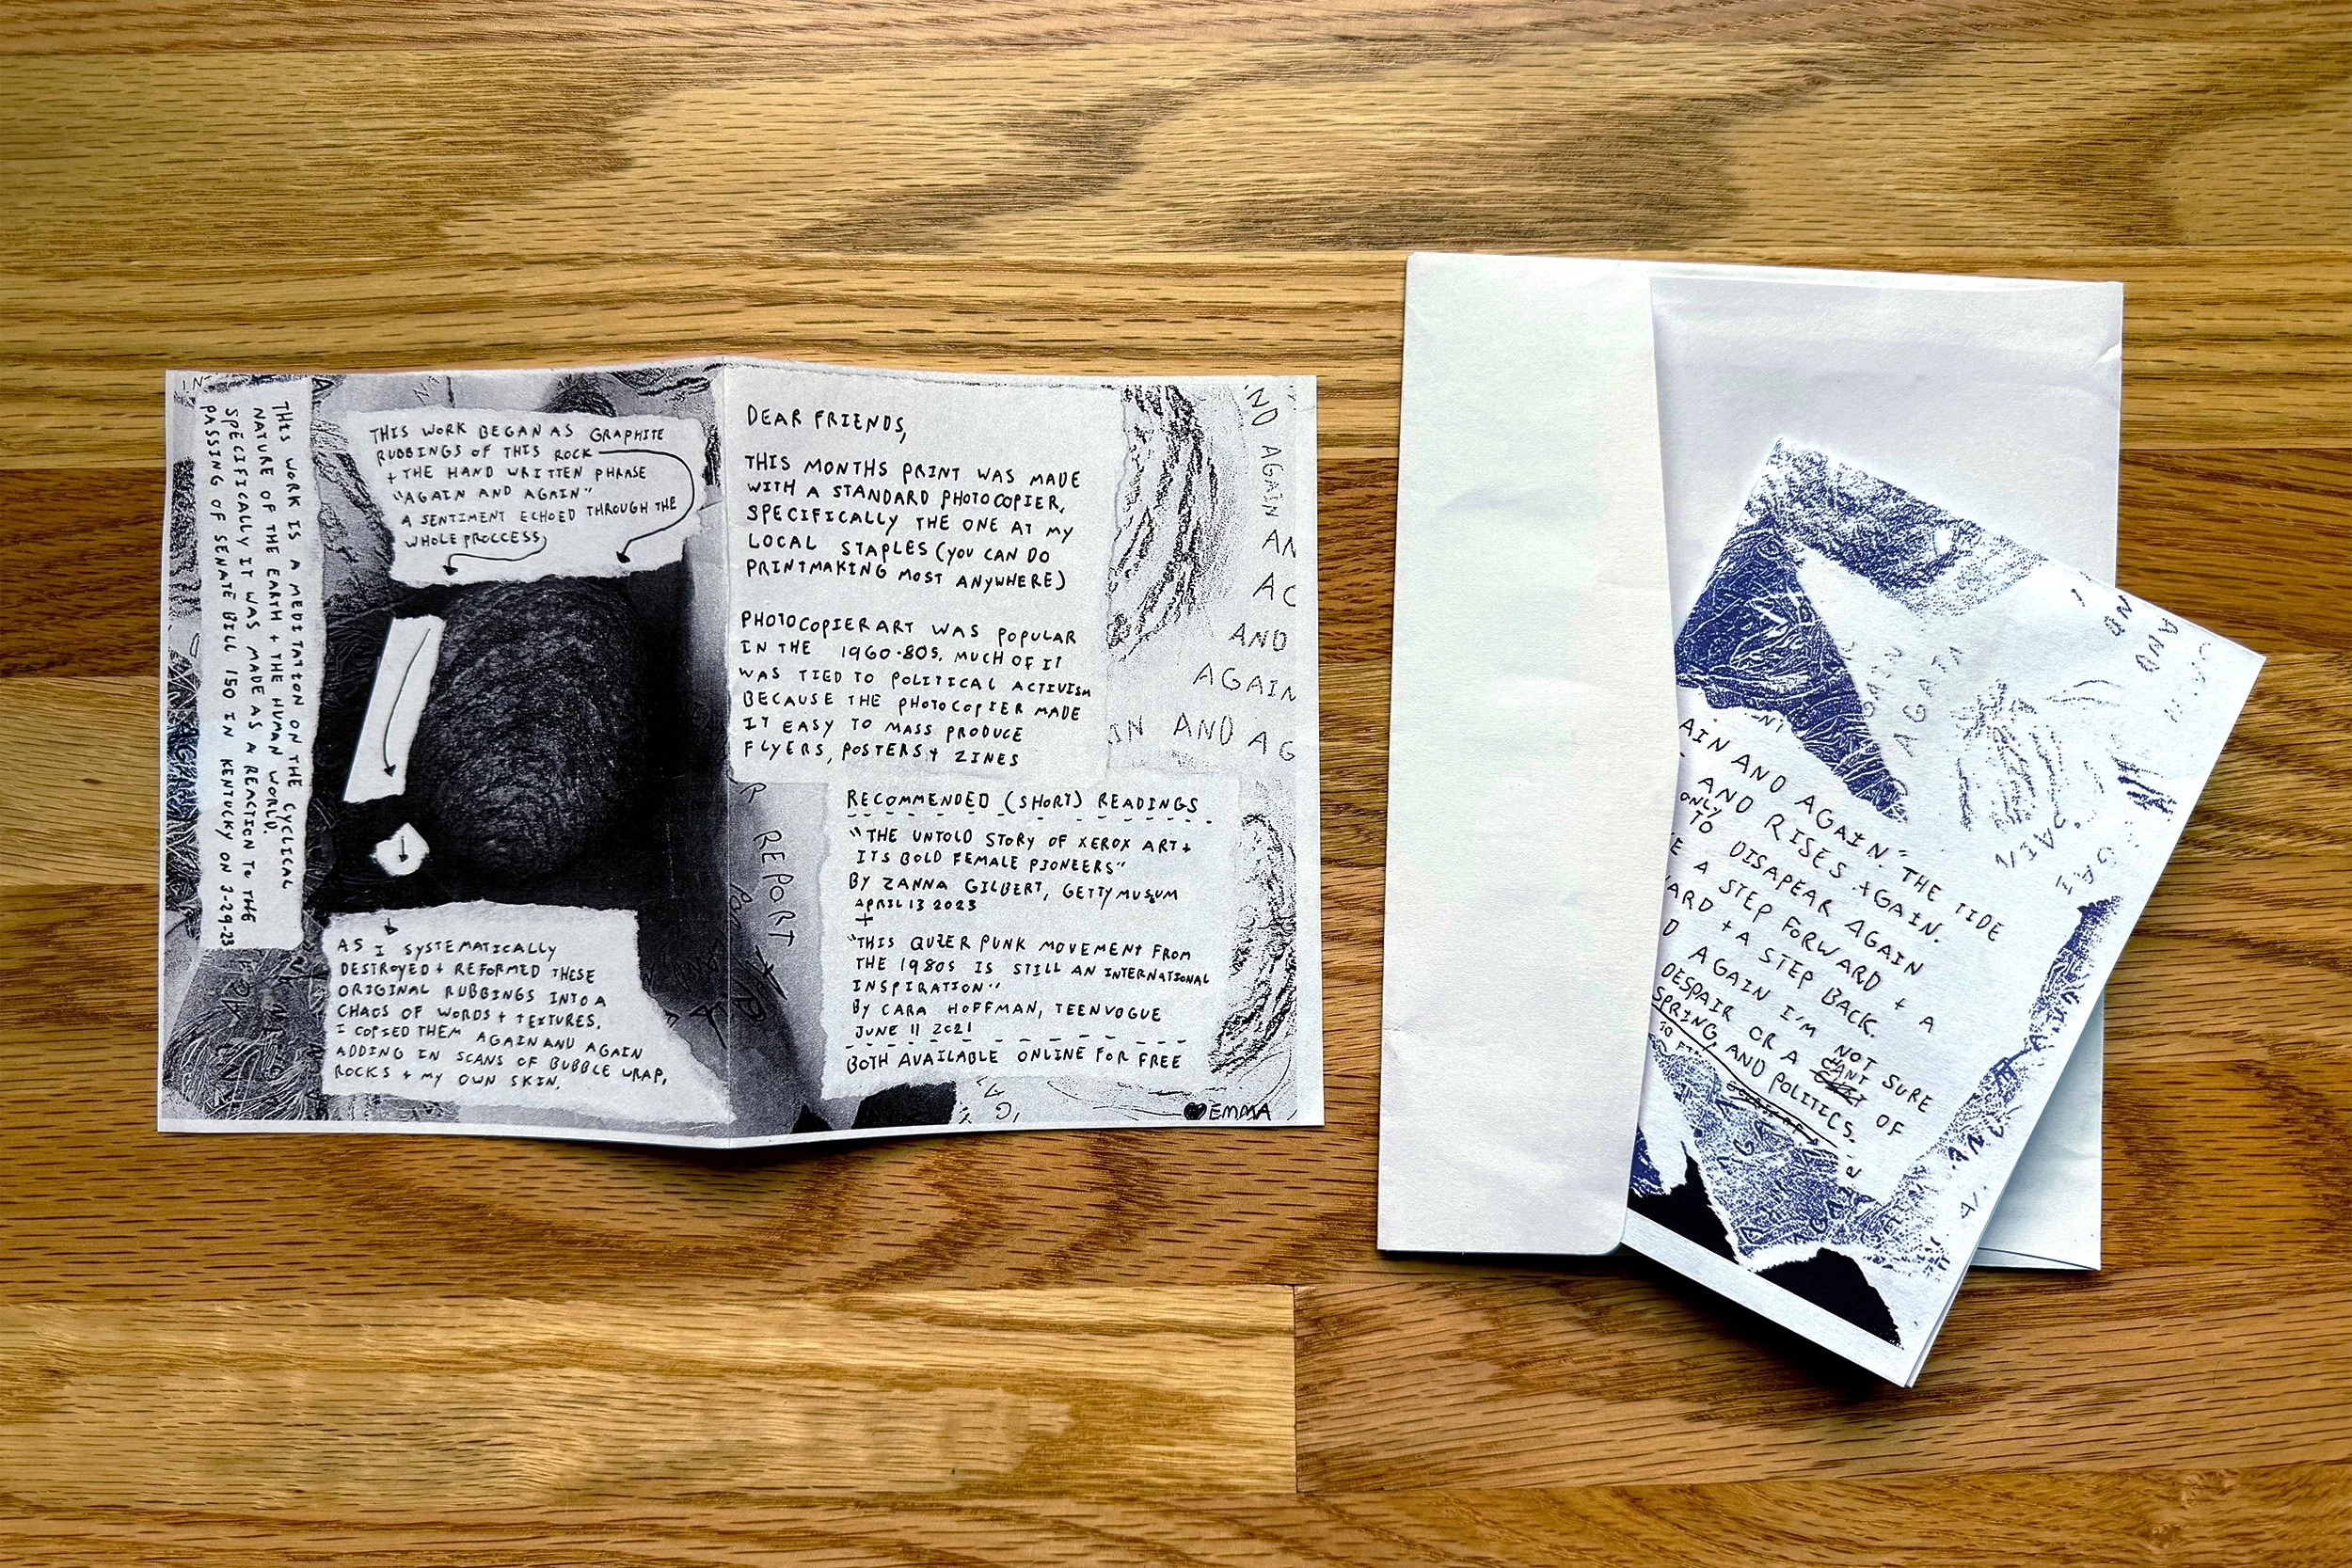 THIS WORK IS A MEDITATION ON THE CYCLICAL
NATURE OF THE EARTH + THE HUMAN WORLD.
SPECIFICALLY IT WAS MADE AS A REACTION TO THE
PASSING OF SENATE BILL 150 IN KENTUCKY ON 3-29-23
THIS WORK BEGAN AS GRAPHITE
RUBBINGS OF THIS ROCK
+ THE HAND WRITTEN PHRASE
"AGAIN AND AGAIN"
A SENTIMENT ECHOED THROUGH THE
WHOLE PROCCESS
AS I SYSTEMATICALLY
DESTROYED + REFORMED THESE
ORIGINAL RUBBINGS INTO A
CHAOS OF WORDS + TEXTURES.
I COPIED THEM AGAIN AND AGAIN
ADDING IN SCANS OF BUBBLE WRAP,
ROCKS + MY OWN SKIN.
DEAR FRIENDS,
THIS MONTHS PRINT WAS MADE
WITH A STANDARD PHOTOCOPIER,
SPECIFICALLY THE ONE AT MY
LOCAL STAPLES (YOU CAN DO
PRINTMAKING MOST ANYWHERE)
PHOTOCOPIER ART WAS POPULAR
IN THE 1960-80S. MUCH OF IT
WAS TIED TO POLITICAL ACTIVISM
BECAUSE THE PHOTOCOPIER MADE
IT EASY TO MASS PRODUCE
FLYERS, POSTERS + ZINES
'ND AGAIN
AN
AND
AGAIN
IN AND AG
REPORT
RECOMMENDED (SHORT) READINGS
"THE UNTOLD STORY OF XEROX ART +
ITS BOLD FEMALE PIONEERS"
BY ZANNA GILBERT, GETTY MUSUM
APRIL 13 2023
+
"THIS QUEER PUNK MOVEMENT FROM
THE 1980S IS STILL AN INTERNATIONAL
INSPIRATION"
BY CARA HOFFMAN, TEENVOGUE
JUNE 11 2021
BOTH AVAILABLE ONLINE FOR FREE
♥EMMA
AND
AGAIN
AGAIN
AIN AND AGAIN." THE TIDE
AND RISES AGAIN.
ONLY
TO DISAPEAR AGAIN
E A STEP FORWARD + A
ARD + A STEP BACK.
D AGAIN I'M NOT SURE
DESPAIR OR A CHANT OF
SPRING, AND POLITICS.